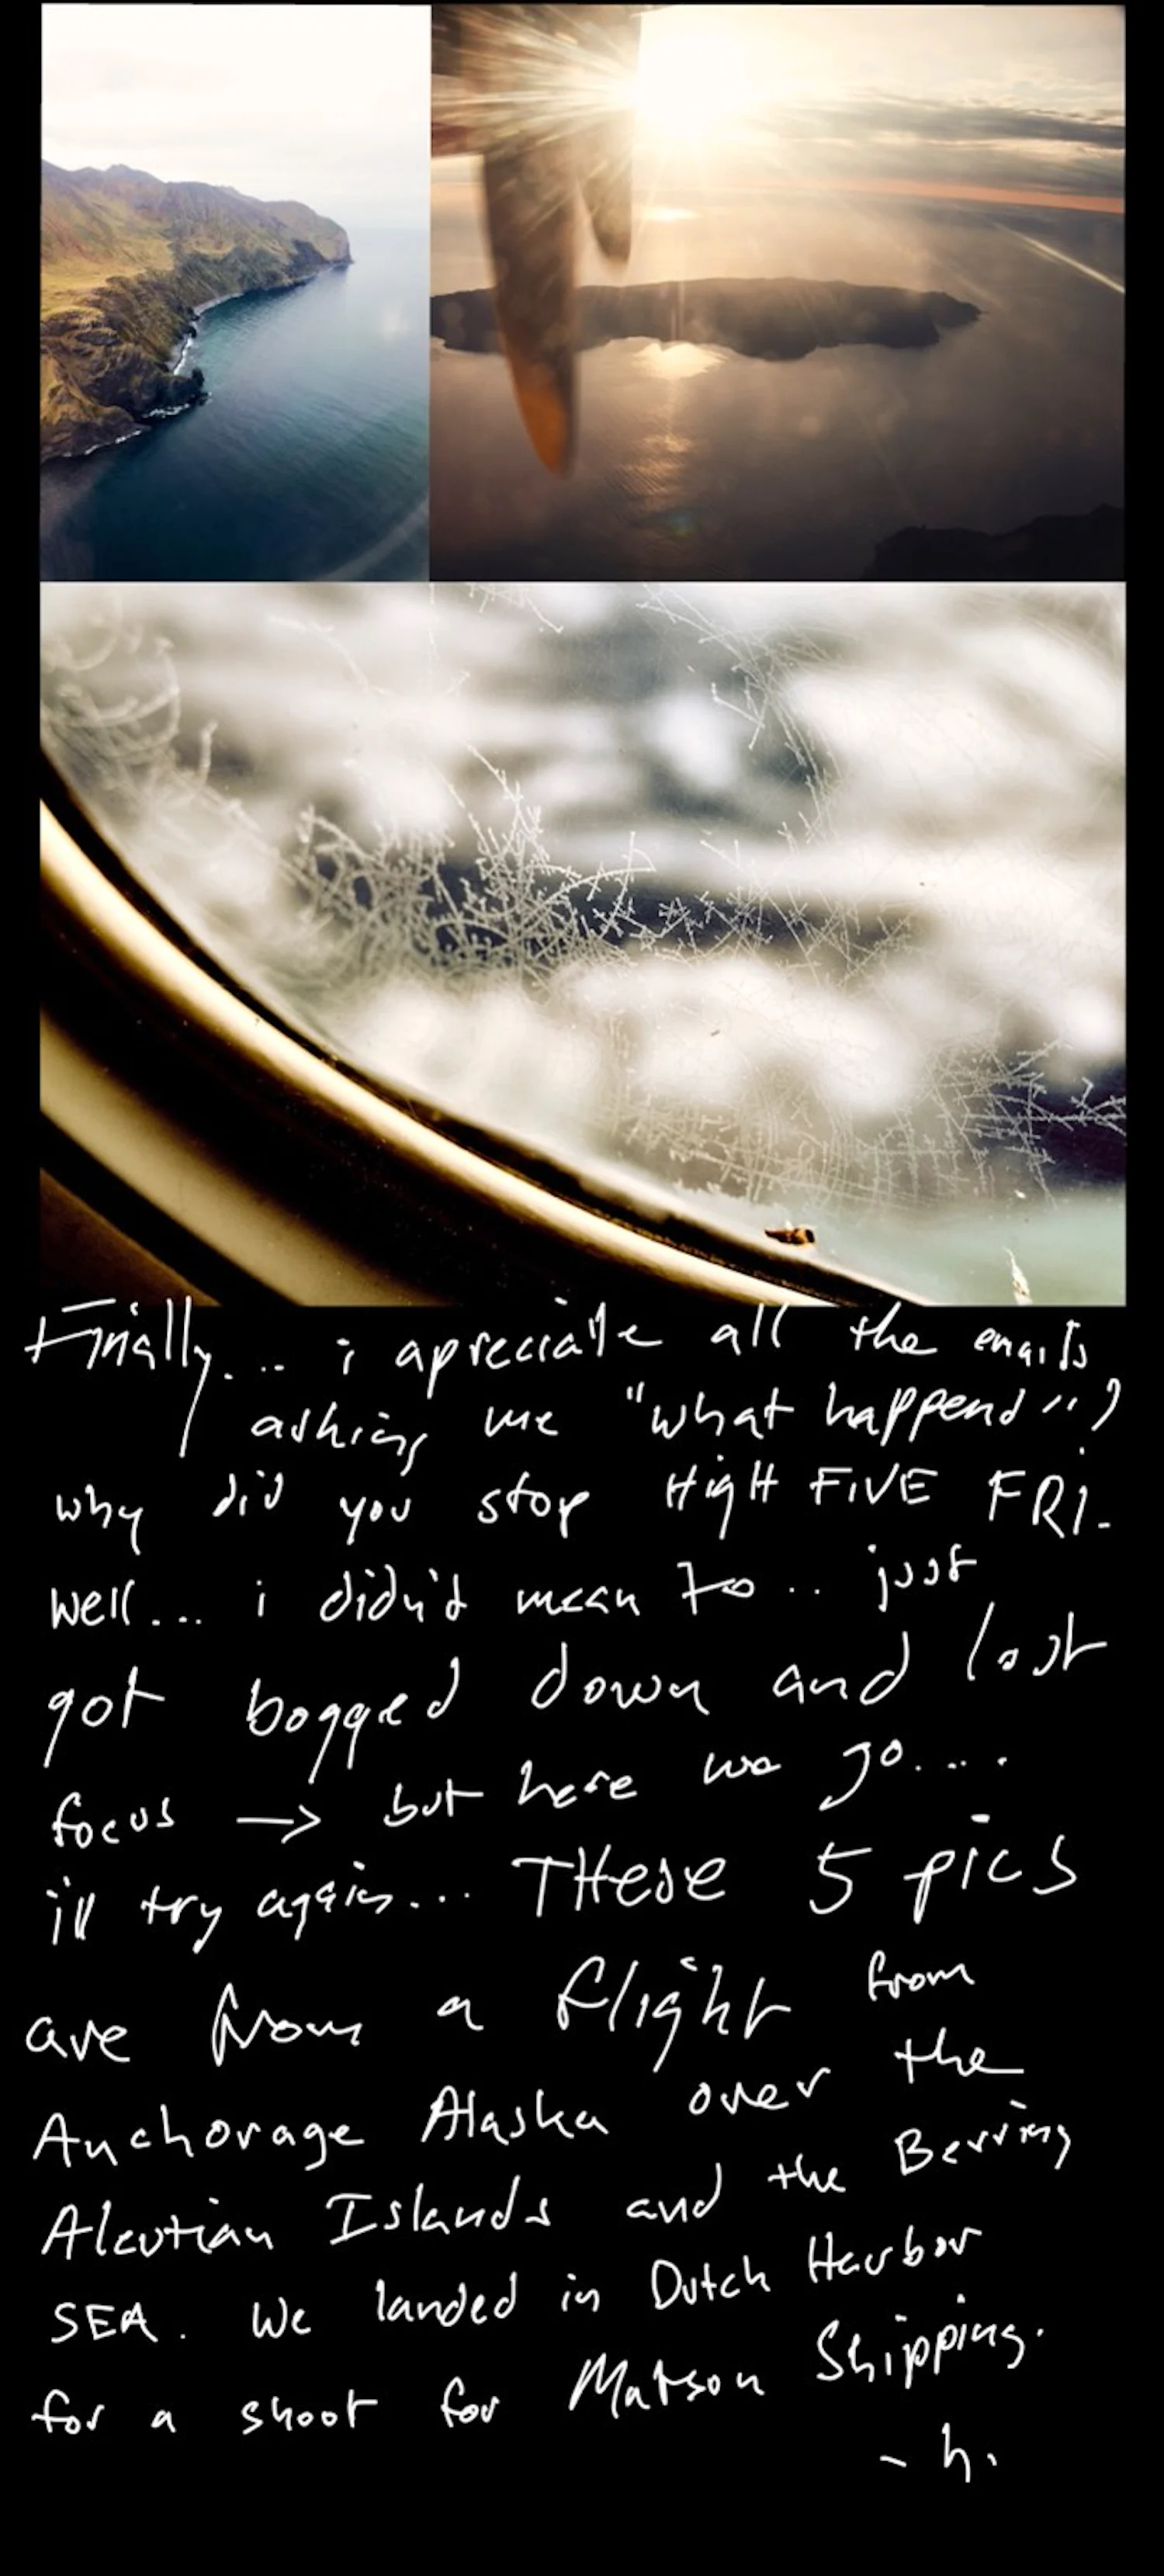 Finally... i apreciate all the emails
asking me "what happend"?
why did you stop HigH FiVE FRI.
well... i didn't mean to.. just
got bogged down and lost
focus → but here we go....
i'll try again... THese 5 pics
are from a flight from
Anchorage Alaska over the
Aleutian Islands and the Berring
SEA. We landed in Dutch Harbor
for a shoot for Matson Shipping.
- h.